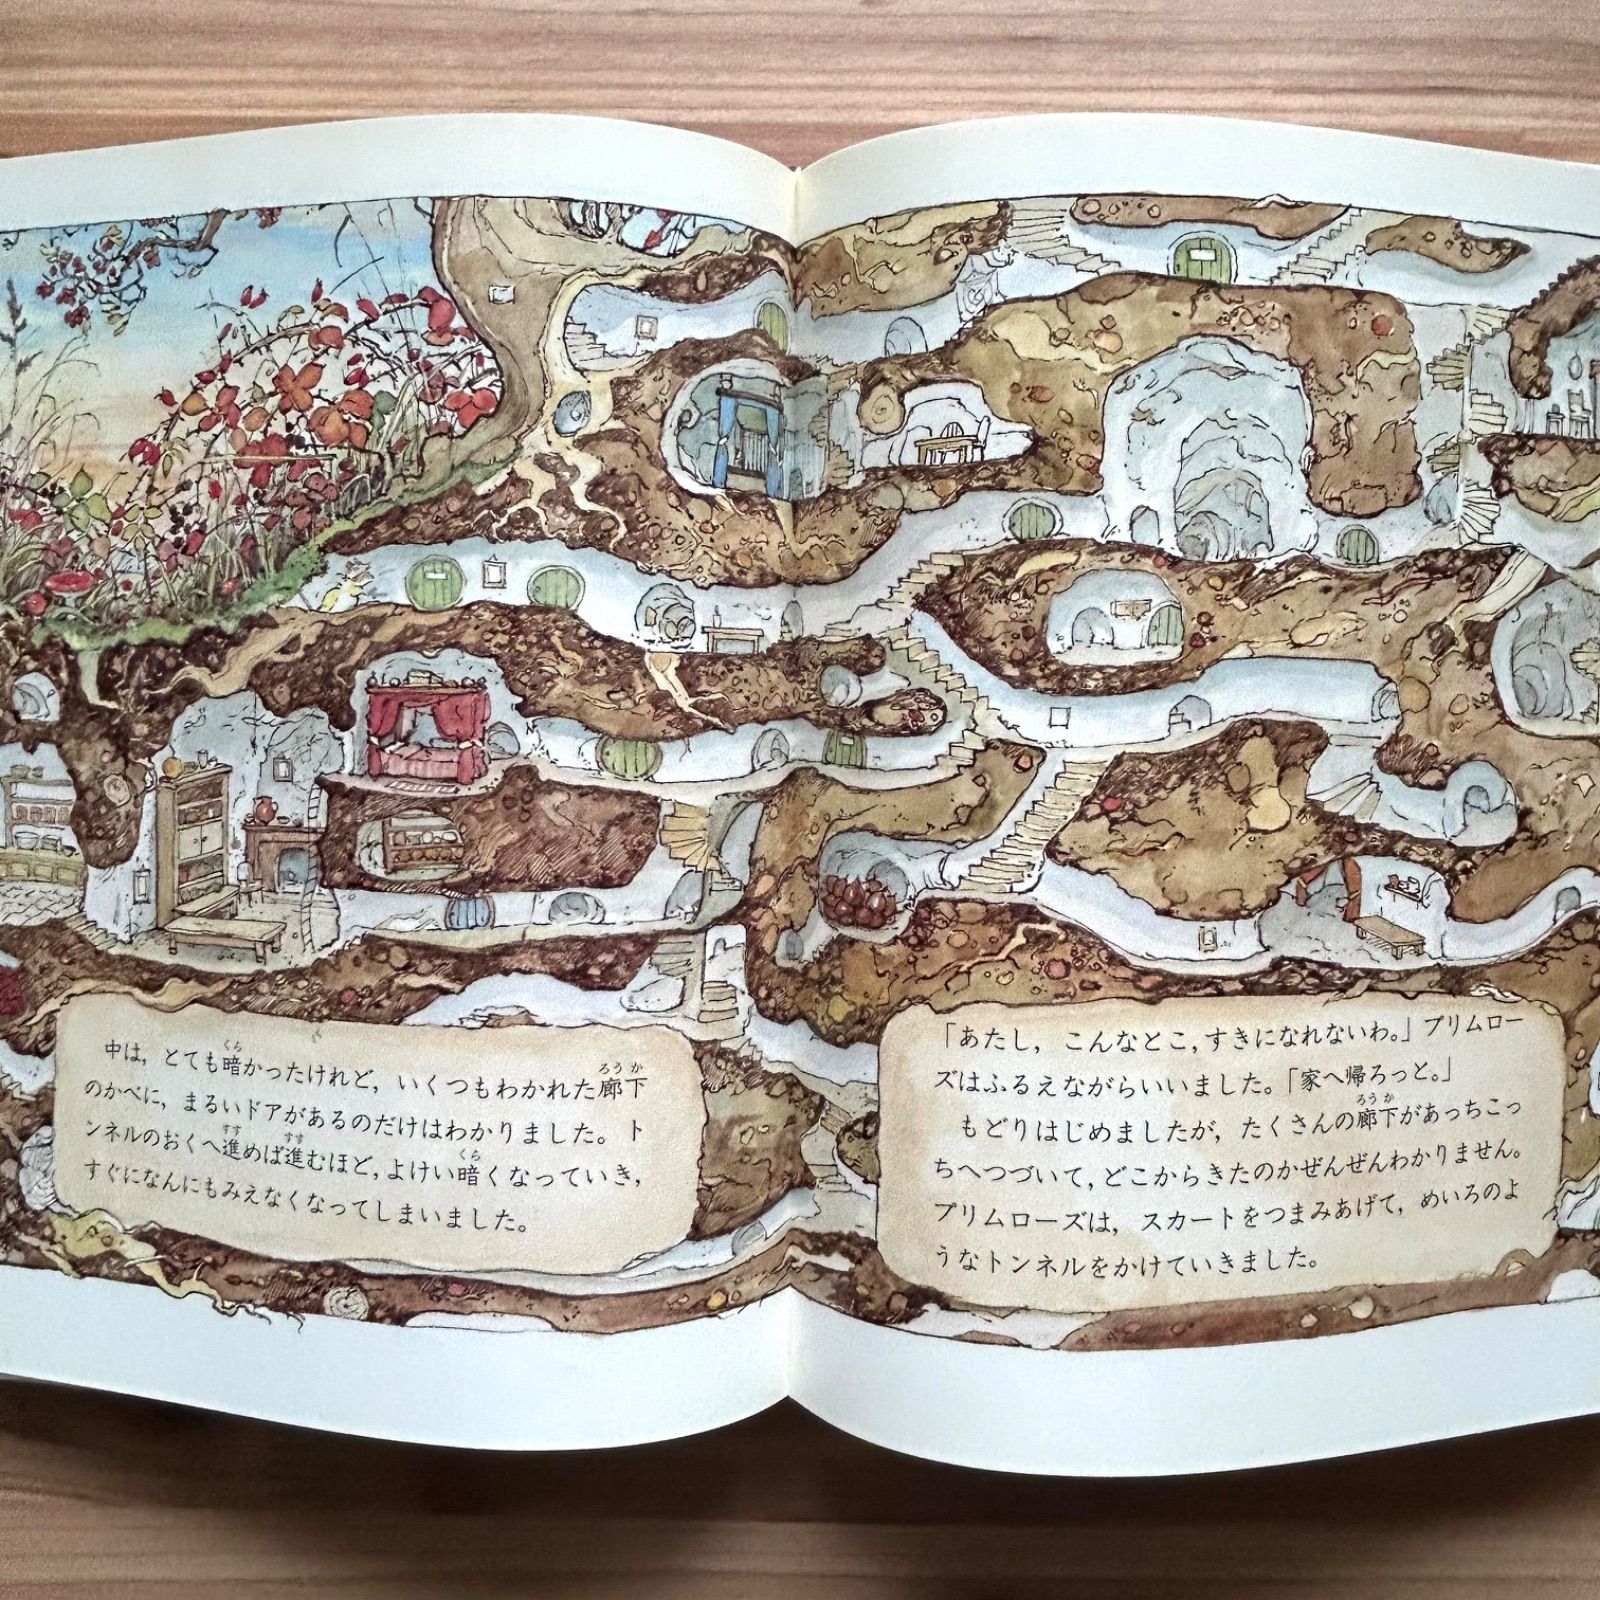 中は，とても暗かったけれど，いくつもわかれた廊下
のかべに，まるいドアがあるのだけはわかりました。ト
ンネルのおくへ進めば進むほど，よけい暗くなっていき，
すぐになんにもみえなくなってしまいました。
「あたし，こんなとこ，すきになれないわ。」プリムロー
ズはふるえながらいいました。「家へ帰ろっと。」
もどりはじめましたが，たくさんの廊下があっちこっ
ちへつづいて，どこからきたのかぜんぜんわかりません。
プリムローズは，スカートをつまみあげて，めいろのよ
うなトンネルをかけていきました。